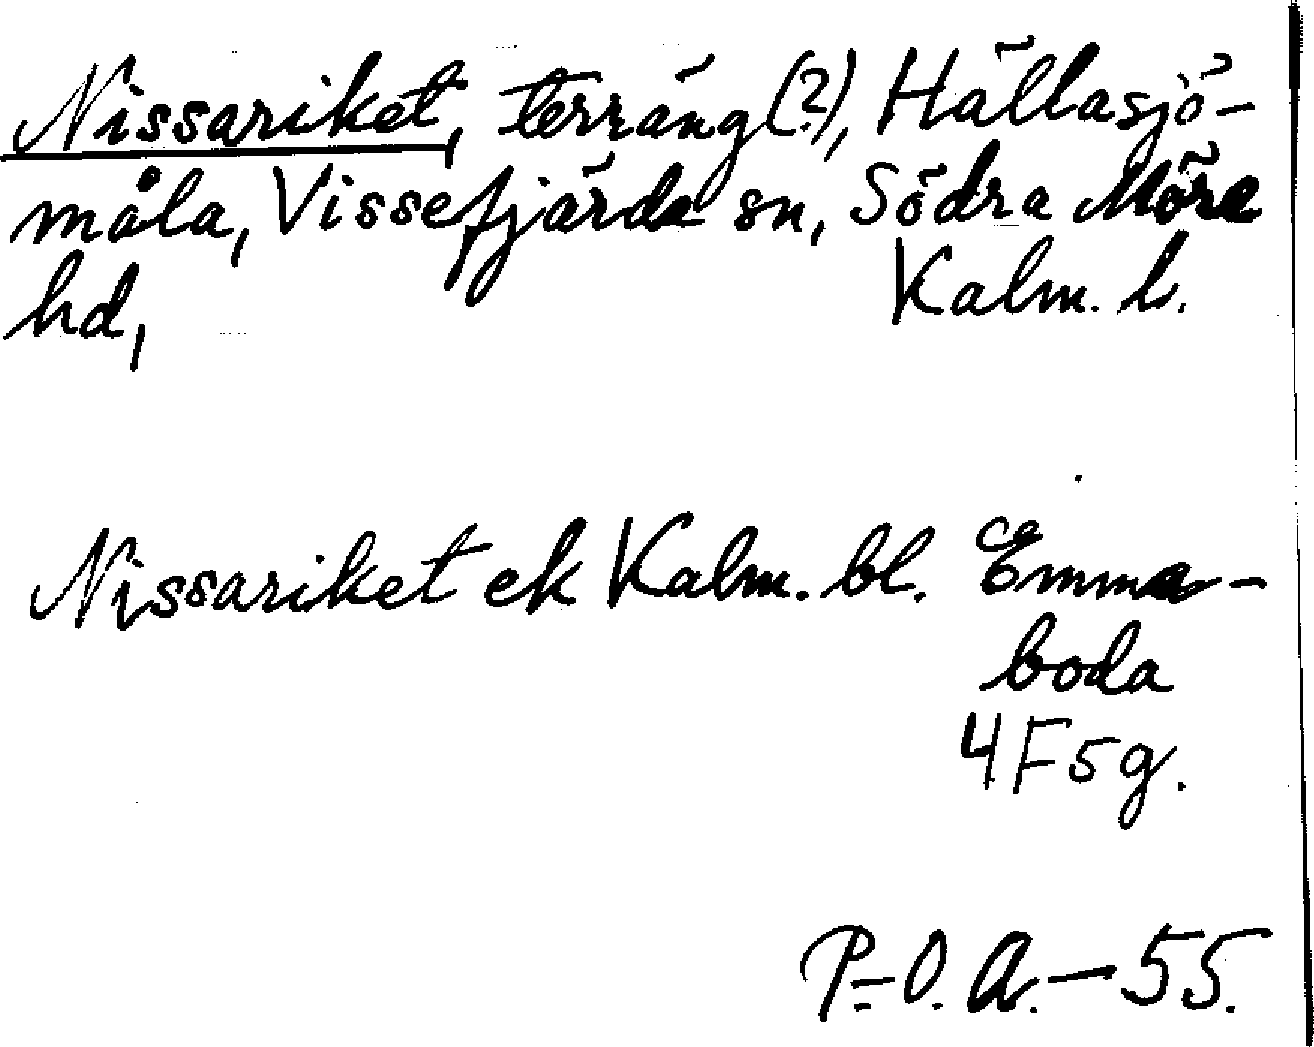 Nissariket, terräng(?), Hällasjö-
måla, Vissefjärda sn, Södra Möre
hd, Kalm. l.
Nissariket ek Kalm. bl. Emma-
boda
4F5g.
P-O. A. - 55.